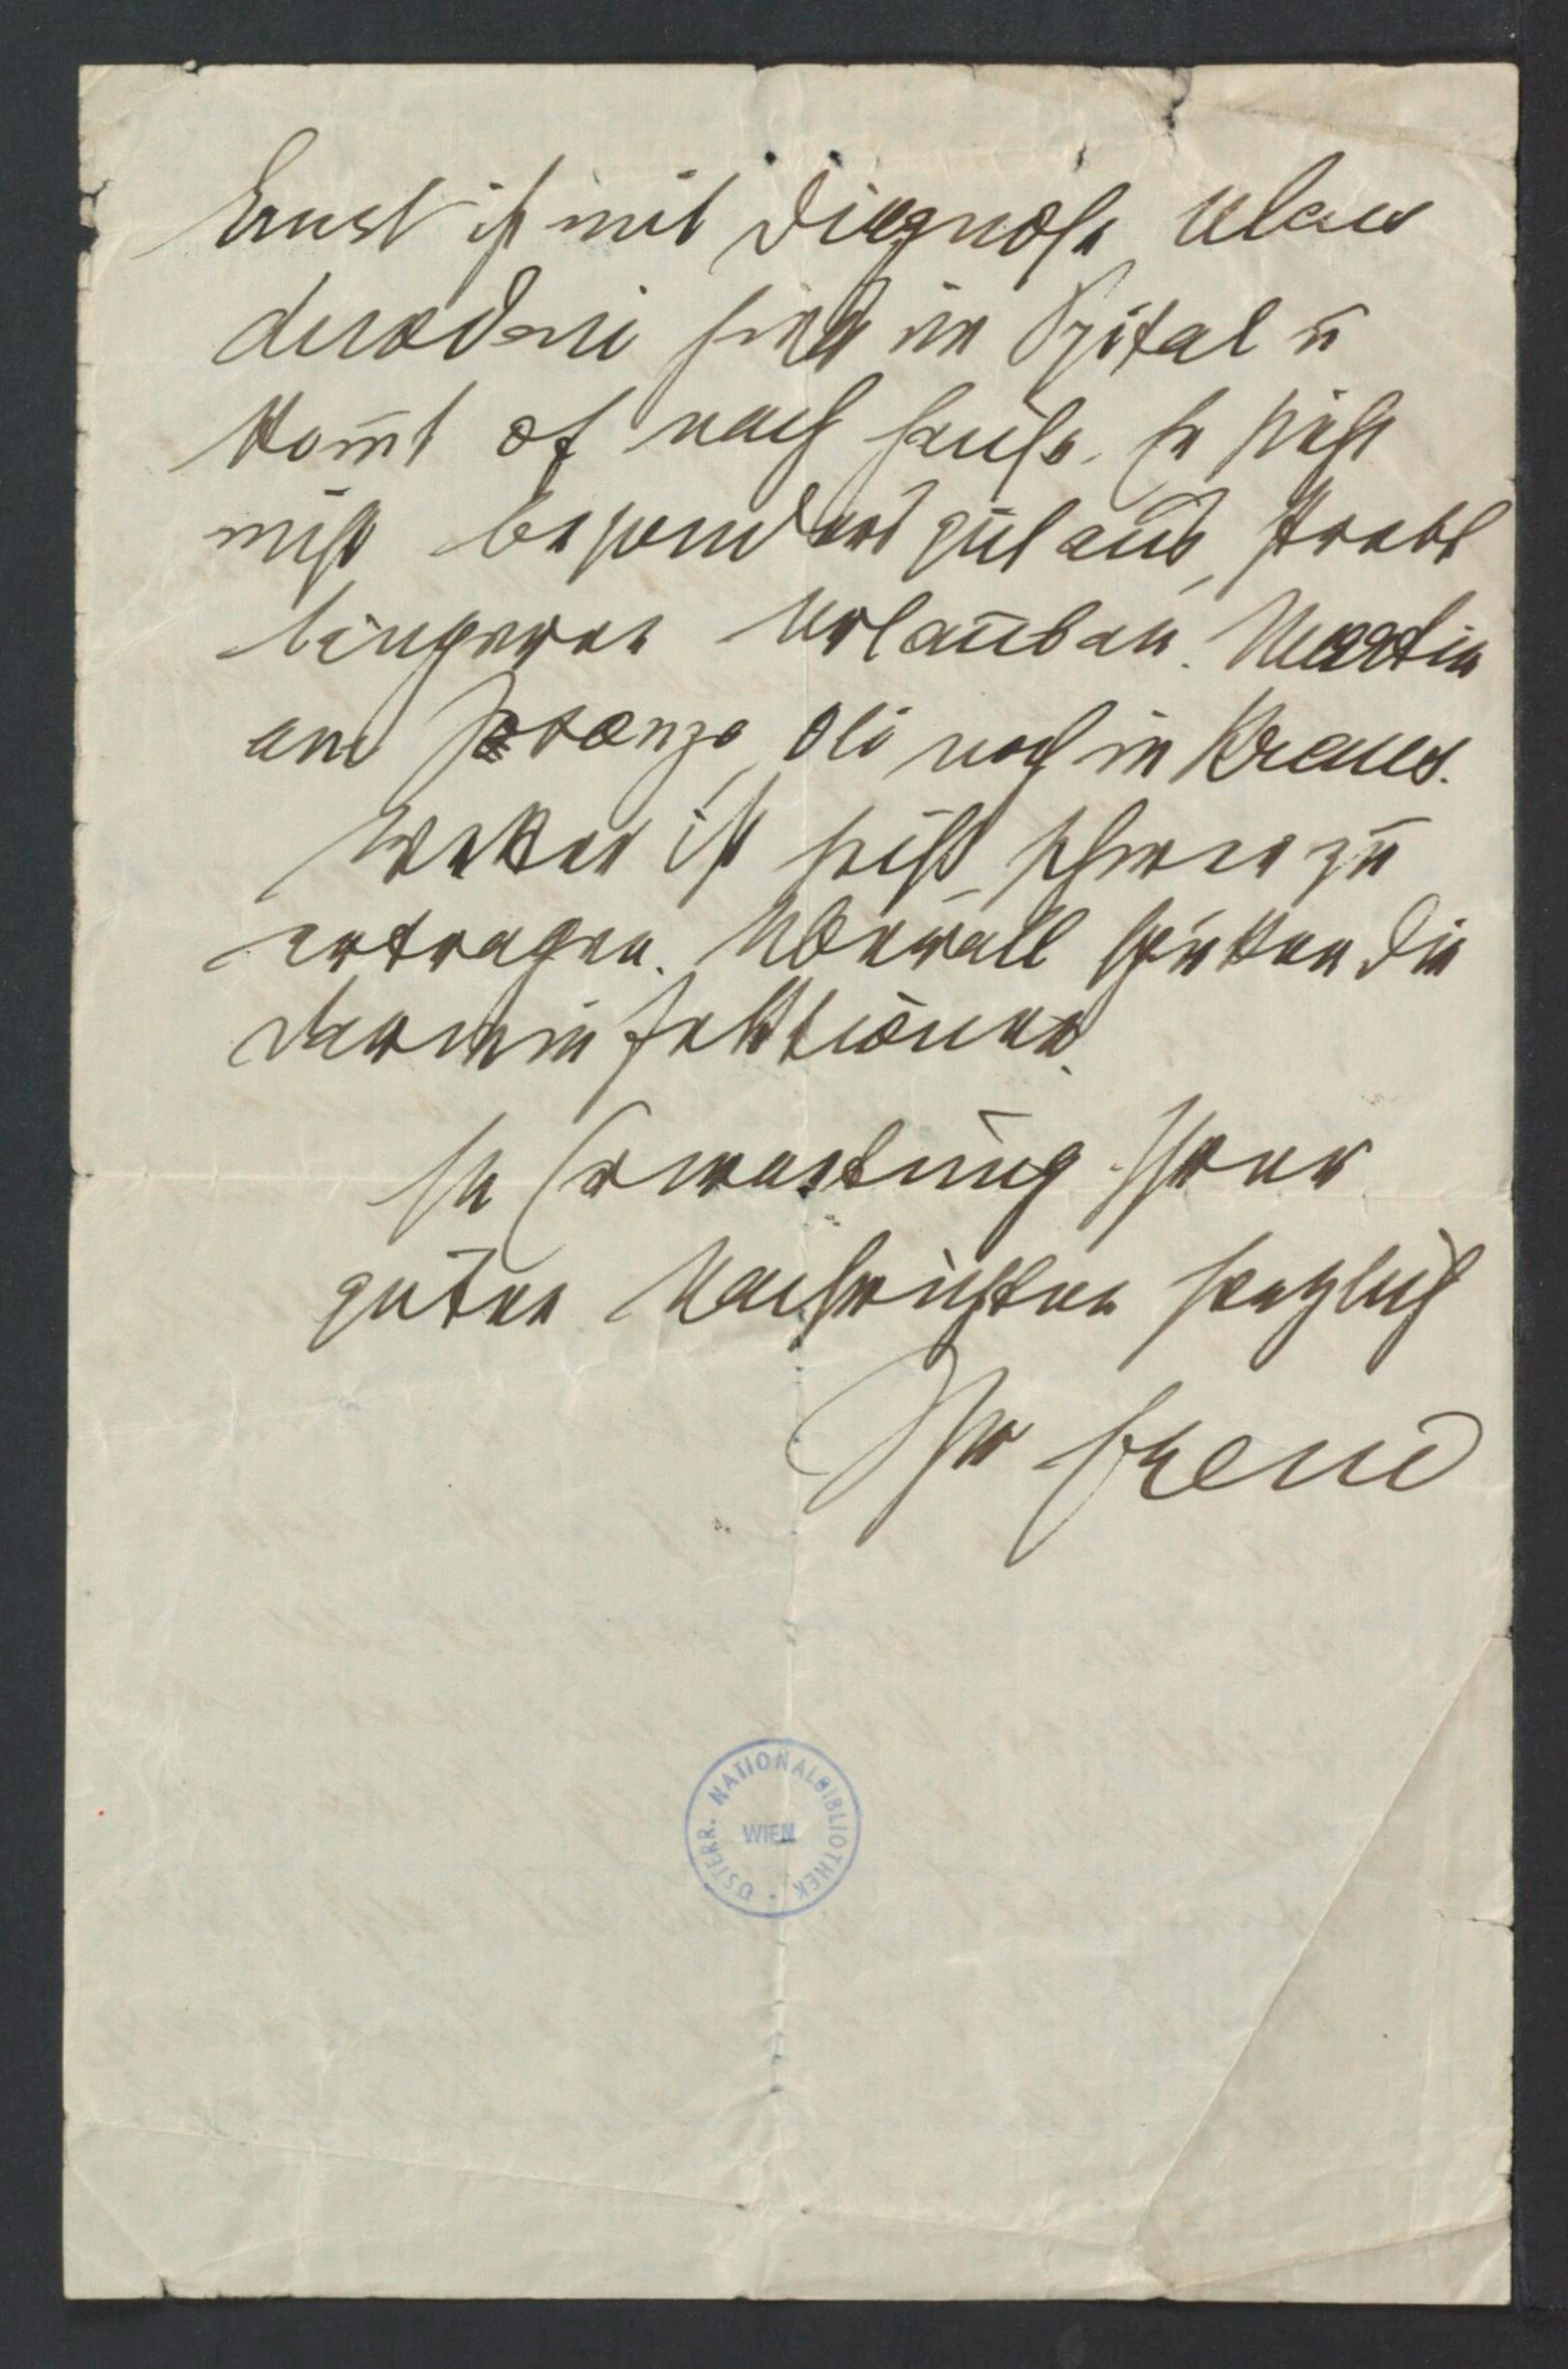 Ernst ist mit Diagnose Ulcus
duodeni hier im Spital u
kom̅t oft nach Hause. Er sieht
nicht besonders gut aus, strebt
längeren Urlaub an. Martin
am Piave, Oli noch in Krems.
Wetter ist heiß schwer zu
ertragen. Überall spuken die
Darminfektionen.
In Erwartung Ihrer
guten Nachrichten herzlich
Ihr Freud
ÖSTERR. NATIONALBIBLIOTHEK
WIEN